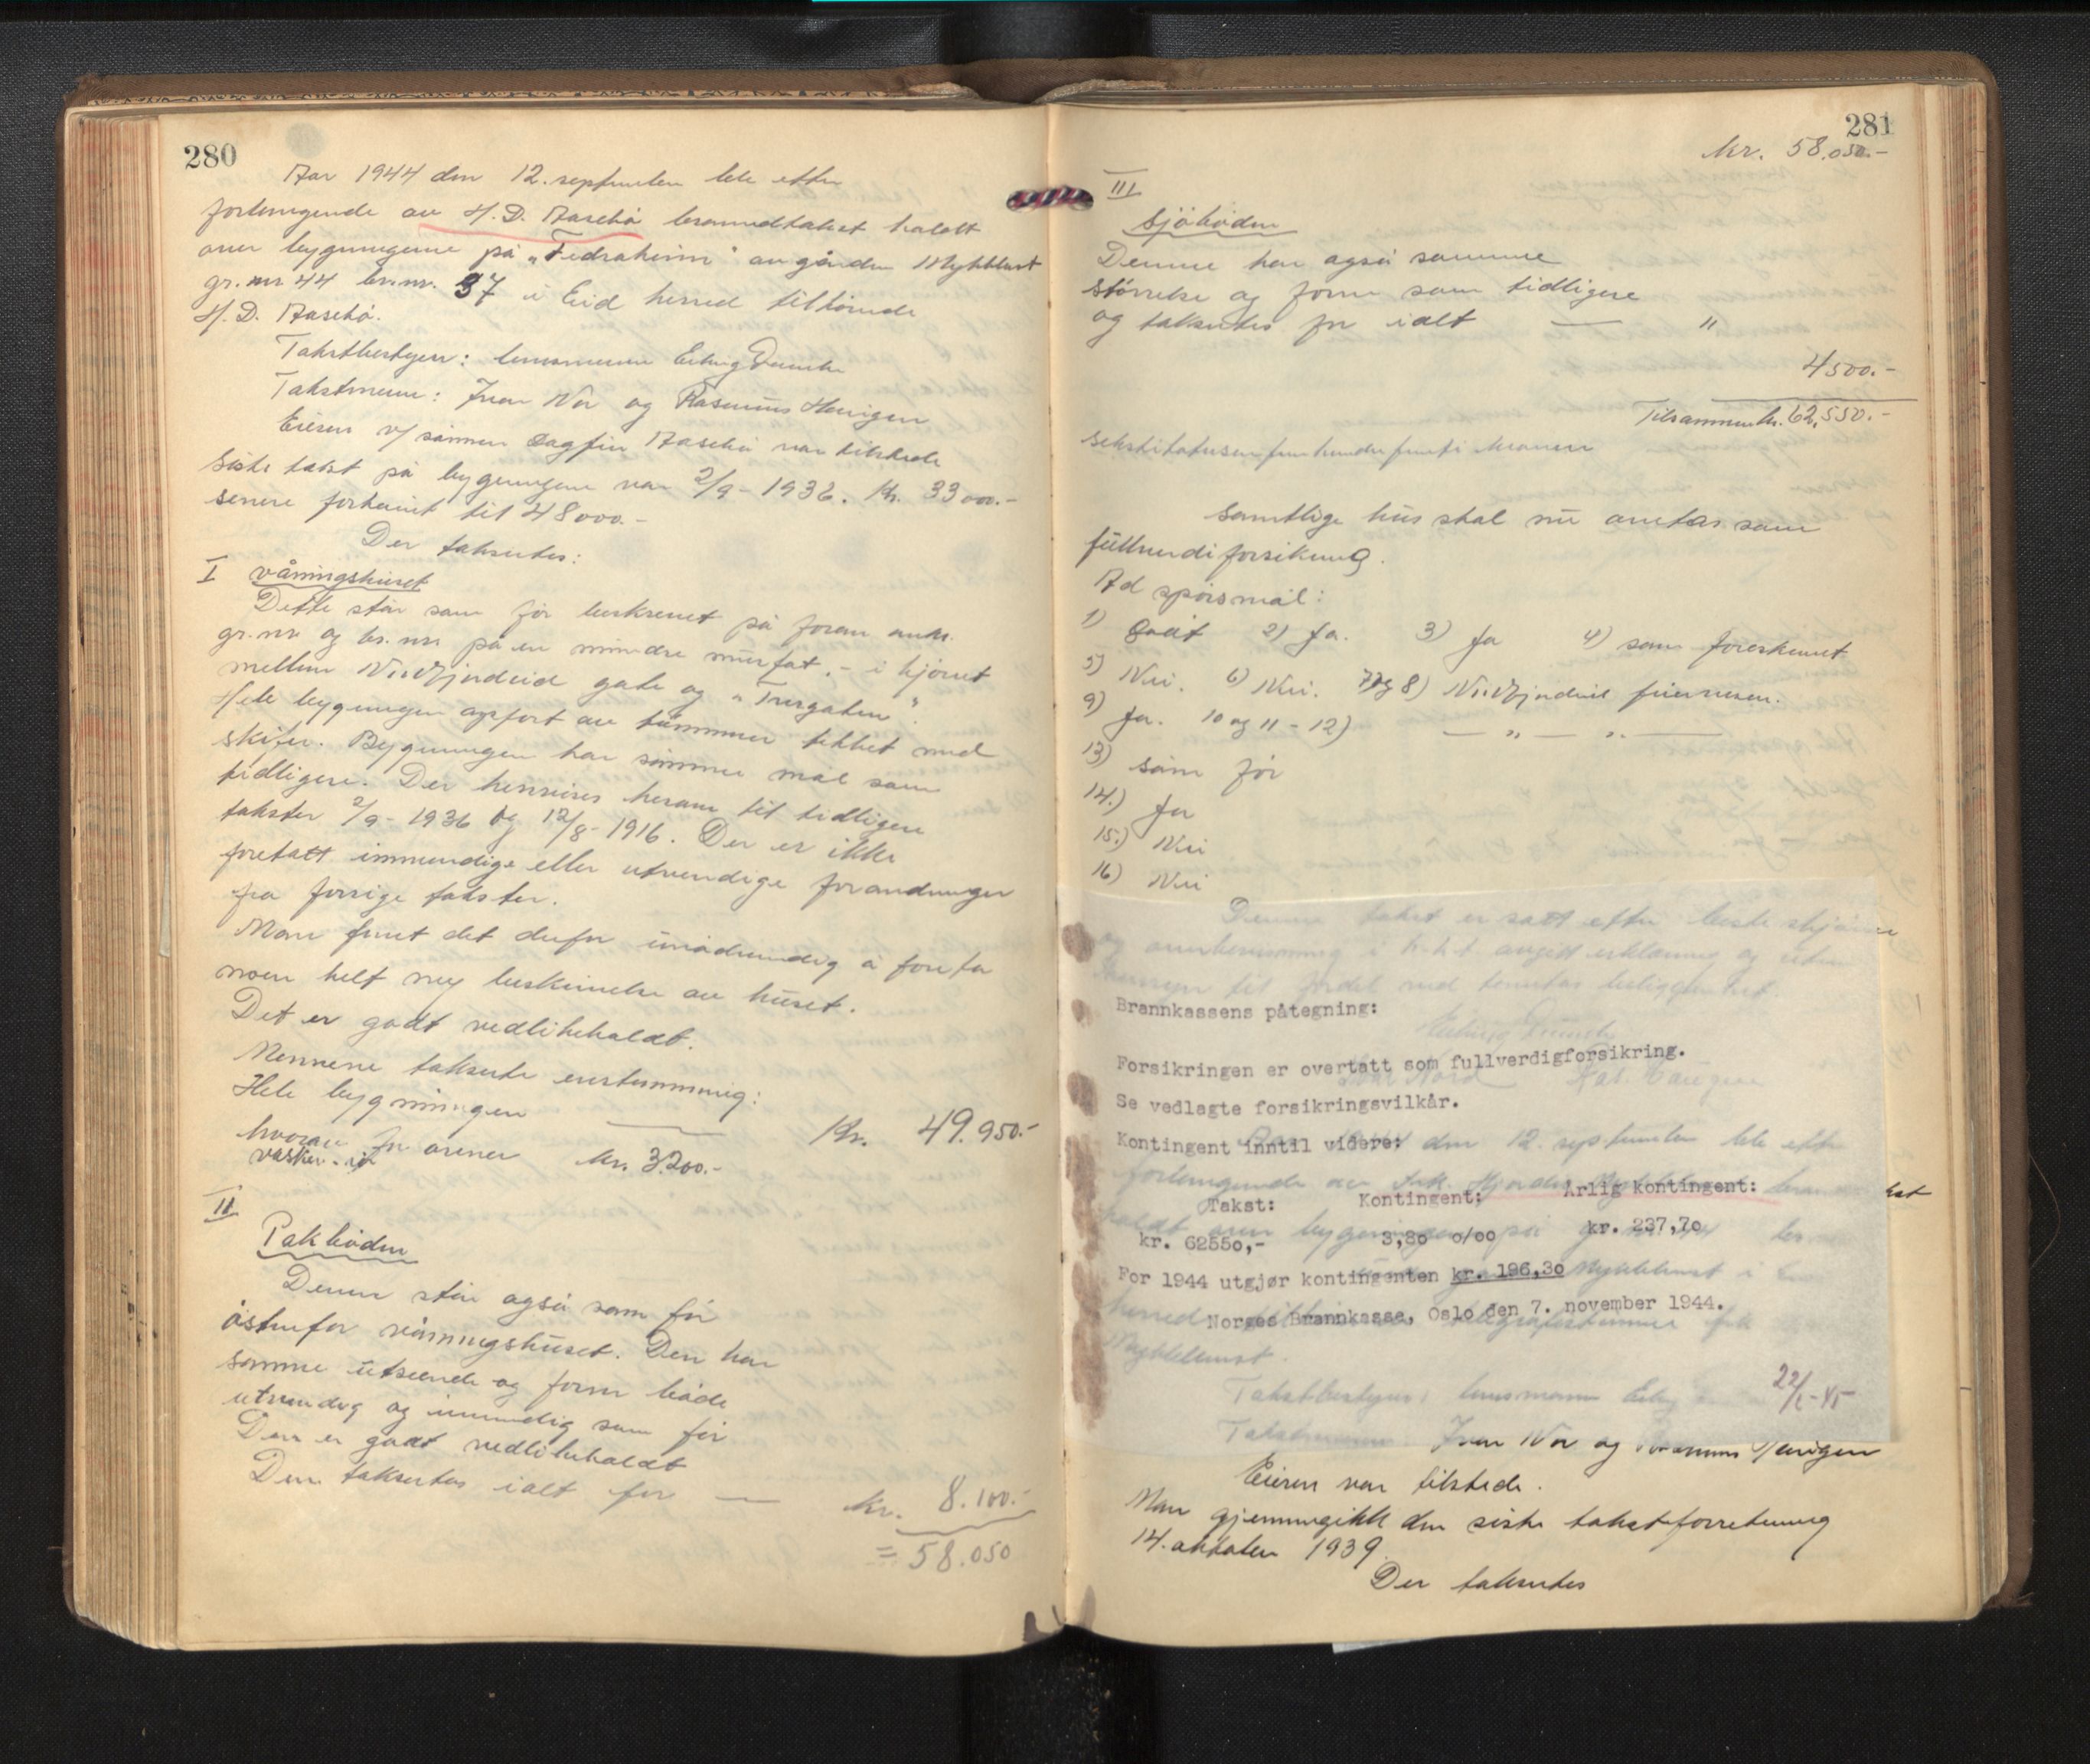 280
Aar 1944 den 12. september ble etter
forlangende av H. D. Aasebø branntakst holdt
over bygningene på „Fedraheim" av gården Myklebust
gr. nr 44 br.nr. 37 i Eid herred tilhørende
H. D. Aasebø.
Takstbestyrer: lensmann Erling
Takstmenn: Ivar Nor og Rasmus Haugen
Eieren v/ sønnen Dagfin Aasebø var tilstede
Siste takst på bygningene var 2/9 - 1936. Kr. 33000.-
senere forhøiet til 48000.-
Der takseres:
I våningshuset
Dette står som før beskrevet på foran anh.
gr. nr. og br. nr. på en mindre murfot. - i hjørnet
mellem Nordfjordeid gate og „Turgaten".
Hele bygningen opført av tømmer tekket med
skifer. Bygningen har samme mål som
tidligere. Der henvises herom til tidligere
takster 2/9 - 1936 og 12/8 - 1916. Der er ikke
foretatt innvendige eller utvendige forandringer
fra forrige takster.
Man fant det derfor unødvendig å foreta
noen helt ny beskrivelse av huset.
Det er godt vedlikeholdt.
Mennene takserte enstemmig:
Hele bygningen — Kr. 49.950.-
hvorav for ovner kr. 3200.-
vasker - rør
II
Pakboden
Denne står også som før
østenfor våningshuset. Den har
samme utseende og form både
utvendig og innvendig som før
Den er godt vedlikeholdt
Den takseres i alt for — kr. 8.100.-
= 58.050
281
kr. 58.050.-
III
Sjøboden
Denne har også samme
størrelse og form som tidligere
og takseres for ialt — "
4500.-
Tilsammen kr. 62,550.-
sekstitotusenfemhundrefemti kroner
Samtlige hus skal nu antas som
fullverdiforsikring.
Ad spørsmål:
1) Godt 2) Ja. 3) Ja 4) som foreskrevet
5) Nei. 6) Nei. 7 og 8) Nordfjordeid feiervesen.
9) Ja. 10 og 11 - 12) — " — " —
13) som før
14.) Ja
15.) Nei
16) Nei
Denne takst er satt etter beste skjønn
og overbevisning i h. h. t. avgitt erklæring og uten
hensyn til fordel ved tomtens beliggenhet.
Brannkassens påtegning:
Forsikringen er overtatt som fullverdigforsikring.
Ivar Nord Ras. Haugen
Se vedlagte forsikringsvilkår.
Kontingent inntil videre:
den 12. september ble etter
forlangende av
Takst: Kontingent: Årlig kontingent:
kr. 62550,- 3,80 o/oo kr. 237,70
For 1944 utgjør kontingenten kr. 196,30
Myklebust i
Norges Brannkasse, Oslo den 7. november 1944.
herred
Myklebust.
22/1-45
Takstbestyrer: lensmann
Takstmenn Ivar Nor og Rasmus Haugen
Eieren var tilstede.
Man gjennemgikk den siste takstforretning
14. oktober 1939.
Der takseres